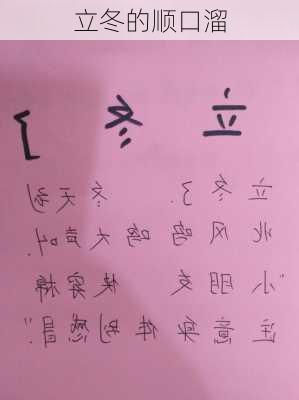 立冬的顺口溜
立冬了
立冬了. 冬天到
北风呜呜大声叫.
“小朋友 快穿棉
注意身体别感冒.”